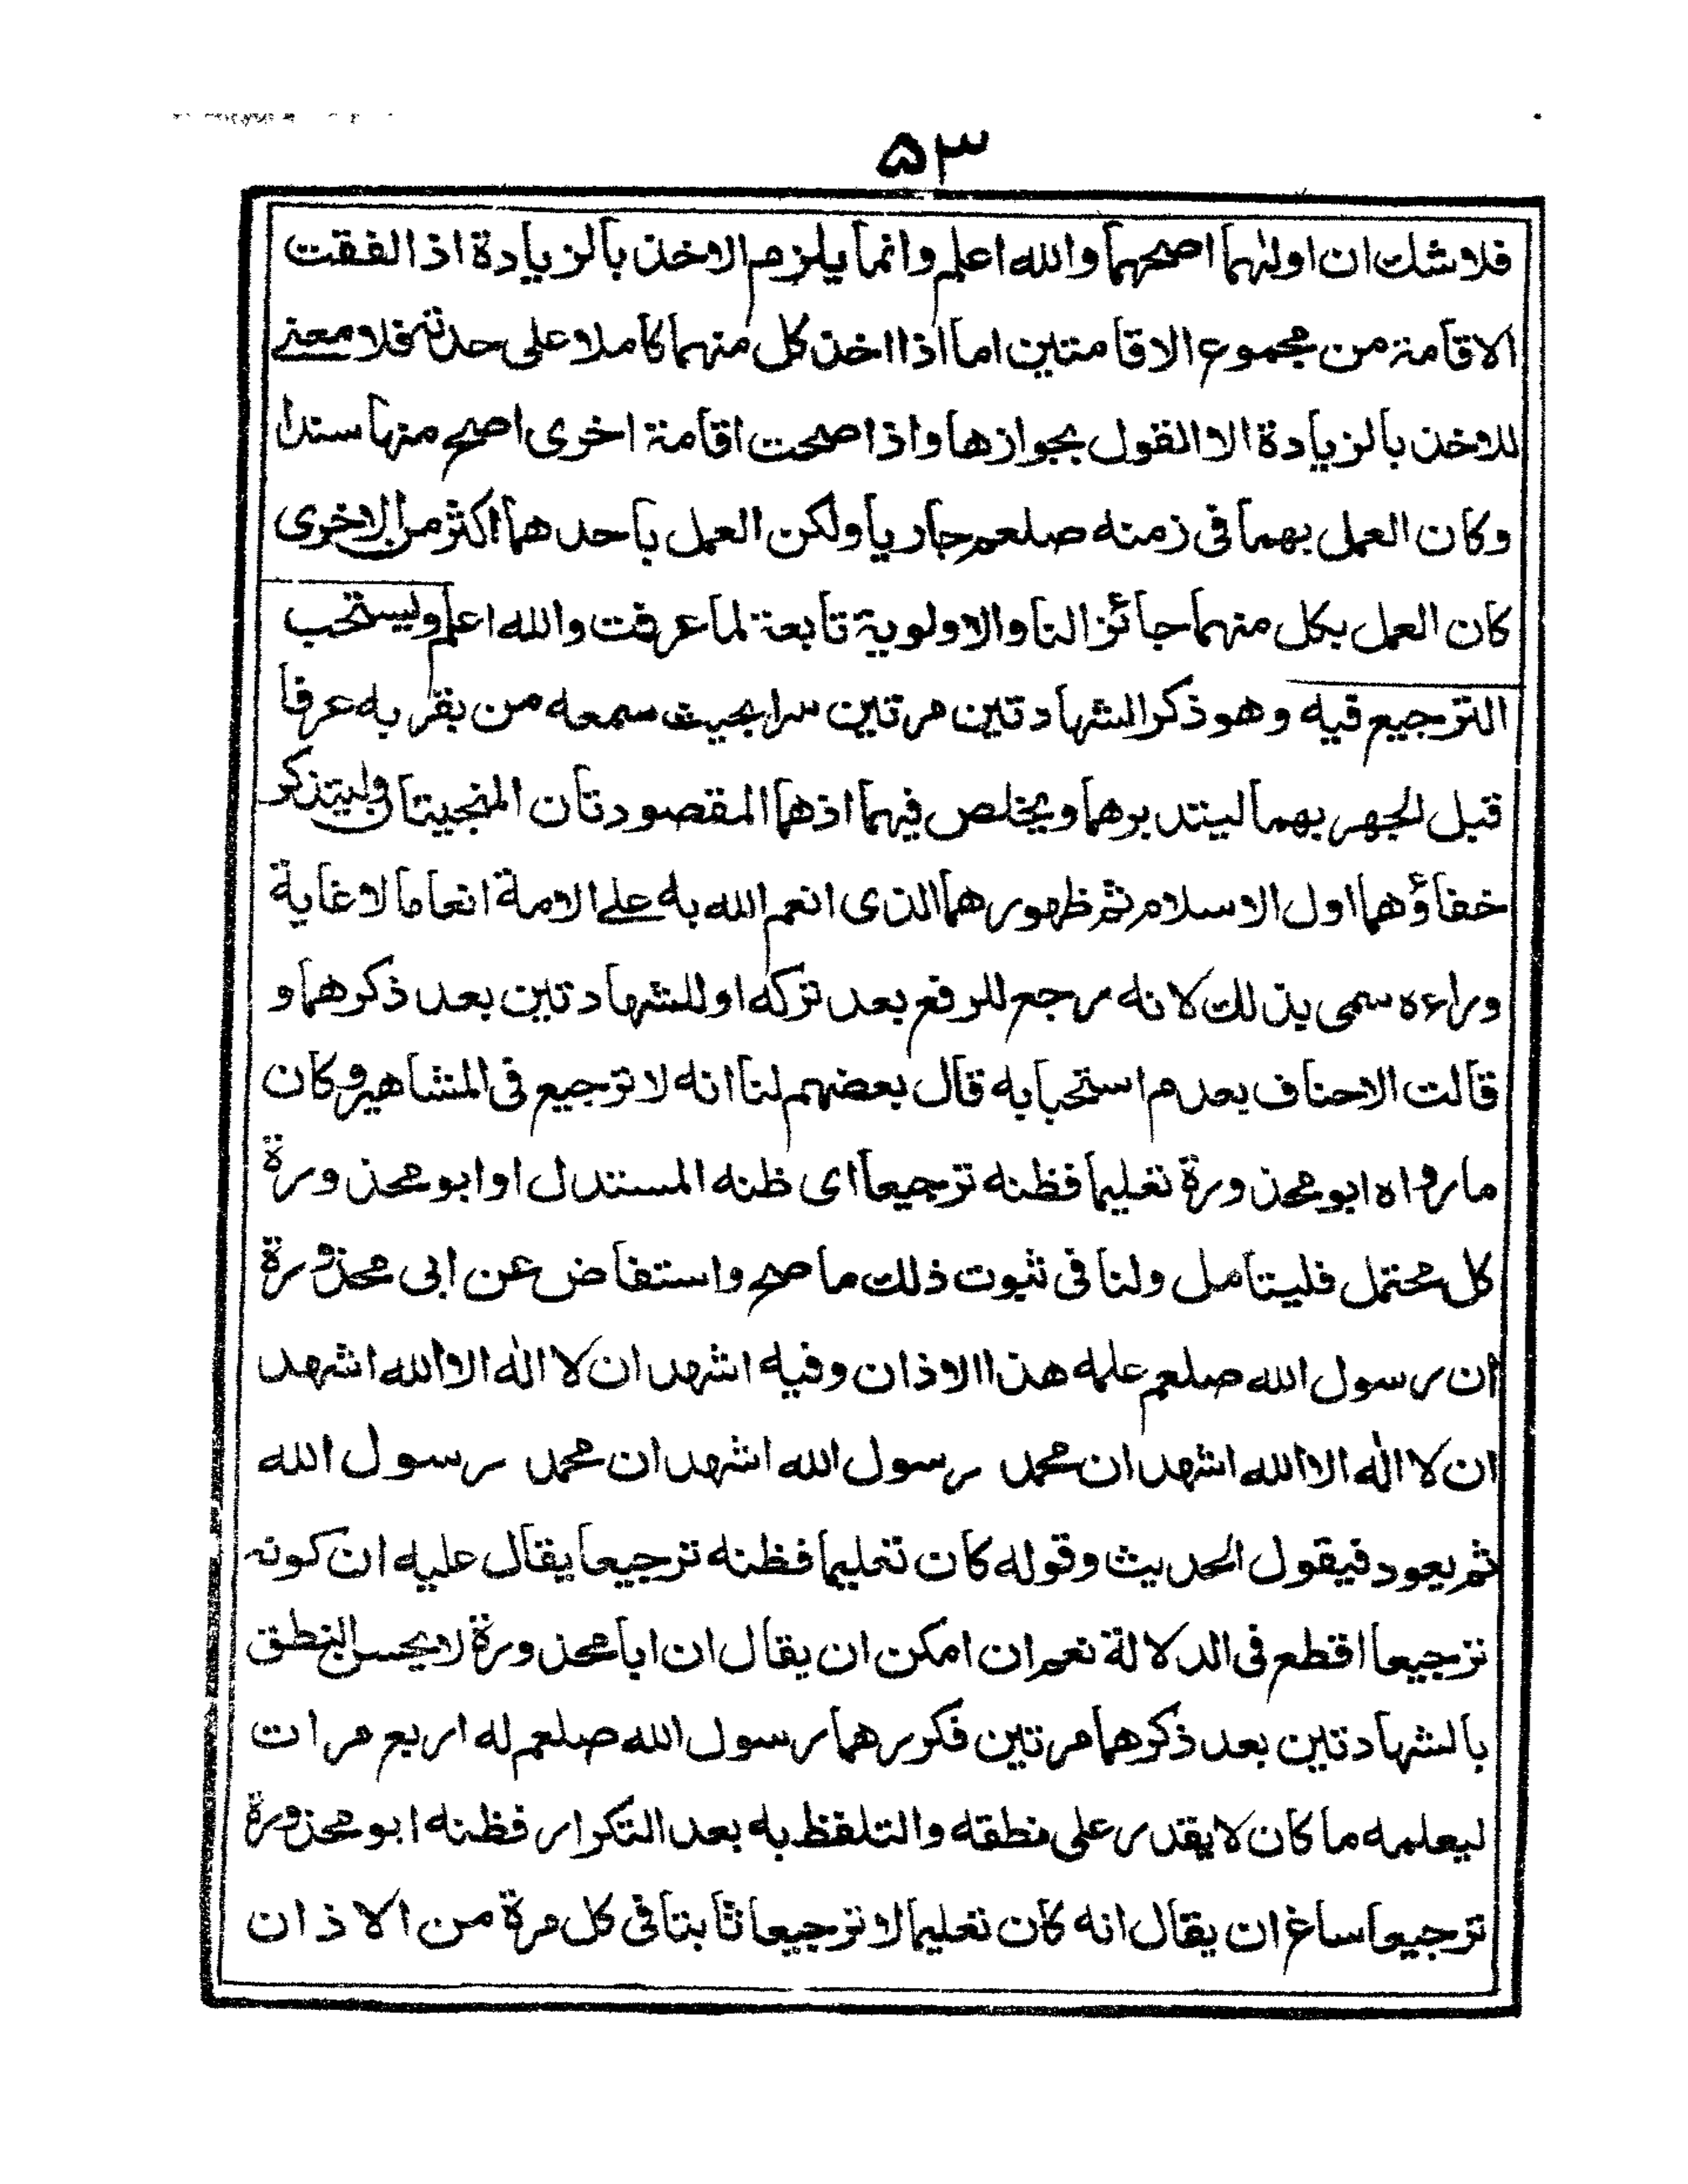 ۵۳
فلاشك ان اولٰهما اصحهما والله اعلم وانما يلزم الاخذ بالزيادة اذ الفقت
الاقامة من مجموع الاقامتين اما اذا اخذ كل منهما كاملا على حدته فلا معنے
للاخذ بالزيادة الا القول بجوازها واذا صحت اقامة اخرى اصح منها سندا
وكان العمل بهما فى زمنه صلعم جاريا ولكن العمل باحدهما اكثر من الاخرى
كان العمل بكل منهما جائز النا والاولوية تابعة لما عرفت والله اعلم ويستحب
الترجيع فيه وهو ذكر الشهادتين مرتين سرا بحيث سمعه من بقربه عرفا
قبل الجهر بهما ليتدبرهما ويخلص فيهما اذهما المقصودتان المنجيتان وليتذكر
خفاؤهما اول الاسلام ثم ظهورهما الذى انعم الله به علے الامة انعاما لا غاية
وراءه سمى بذلك لانه مرجع للرفع بعد تركه او للشهادتين بعد ذكرهما و
قالت الاحناف بعدم استحبابه قال بعضهم لنا انه لا ترجيع فى المشاهير وكان
ما رواه ابو محذورة تعليما فظنه ترجيعا اى ظنه المستدل او ابو محذورة
كل محتمل فليتامل ولنا فى ثبوت ذلك ما صح واستفاض عن ابى محذورة
ان رسول الله صلعم علمه هذا الاذان وفيه اشهد ان لا الٰه الا الله اشهد
ان لا الٰه الا الله اشهد ان محمد رسول الله اشهد ان محمد رسول الله
ثم يعود فيقول الحديث وقوله كان تعليما فظنه ترجيعا يقال عليه ان كونه
ترجيعا اقطع فى الدلالة نعم ان امكن ان يقال ان ابا محذورة لا يحسن النطق
بالشهادتين بعد ذكرهما مرتين فكررهما رسول الله صلعم له اربع مرات
ليعلمه ما كان لا يقدر على نطقه والتلفظ به بعد التكرار فظنه ابو محذورة
ترجيعا ساغ ان يقال انه كان تعليما لا ترجيعا ثابتا فى كل مرة من الاذان